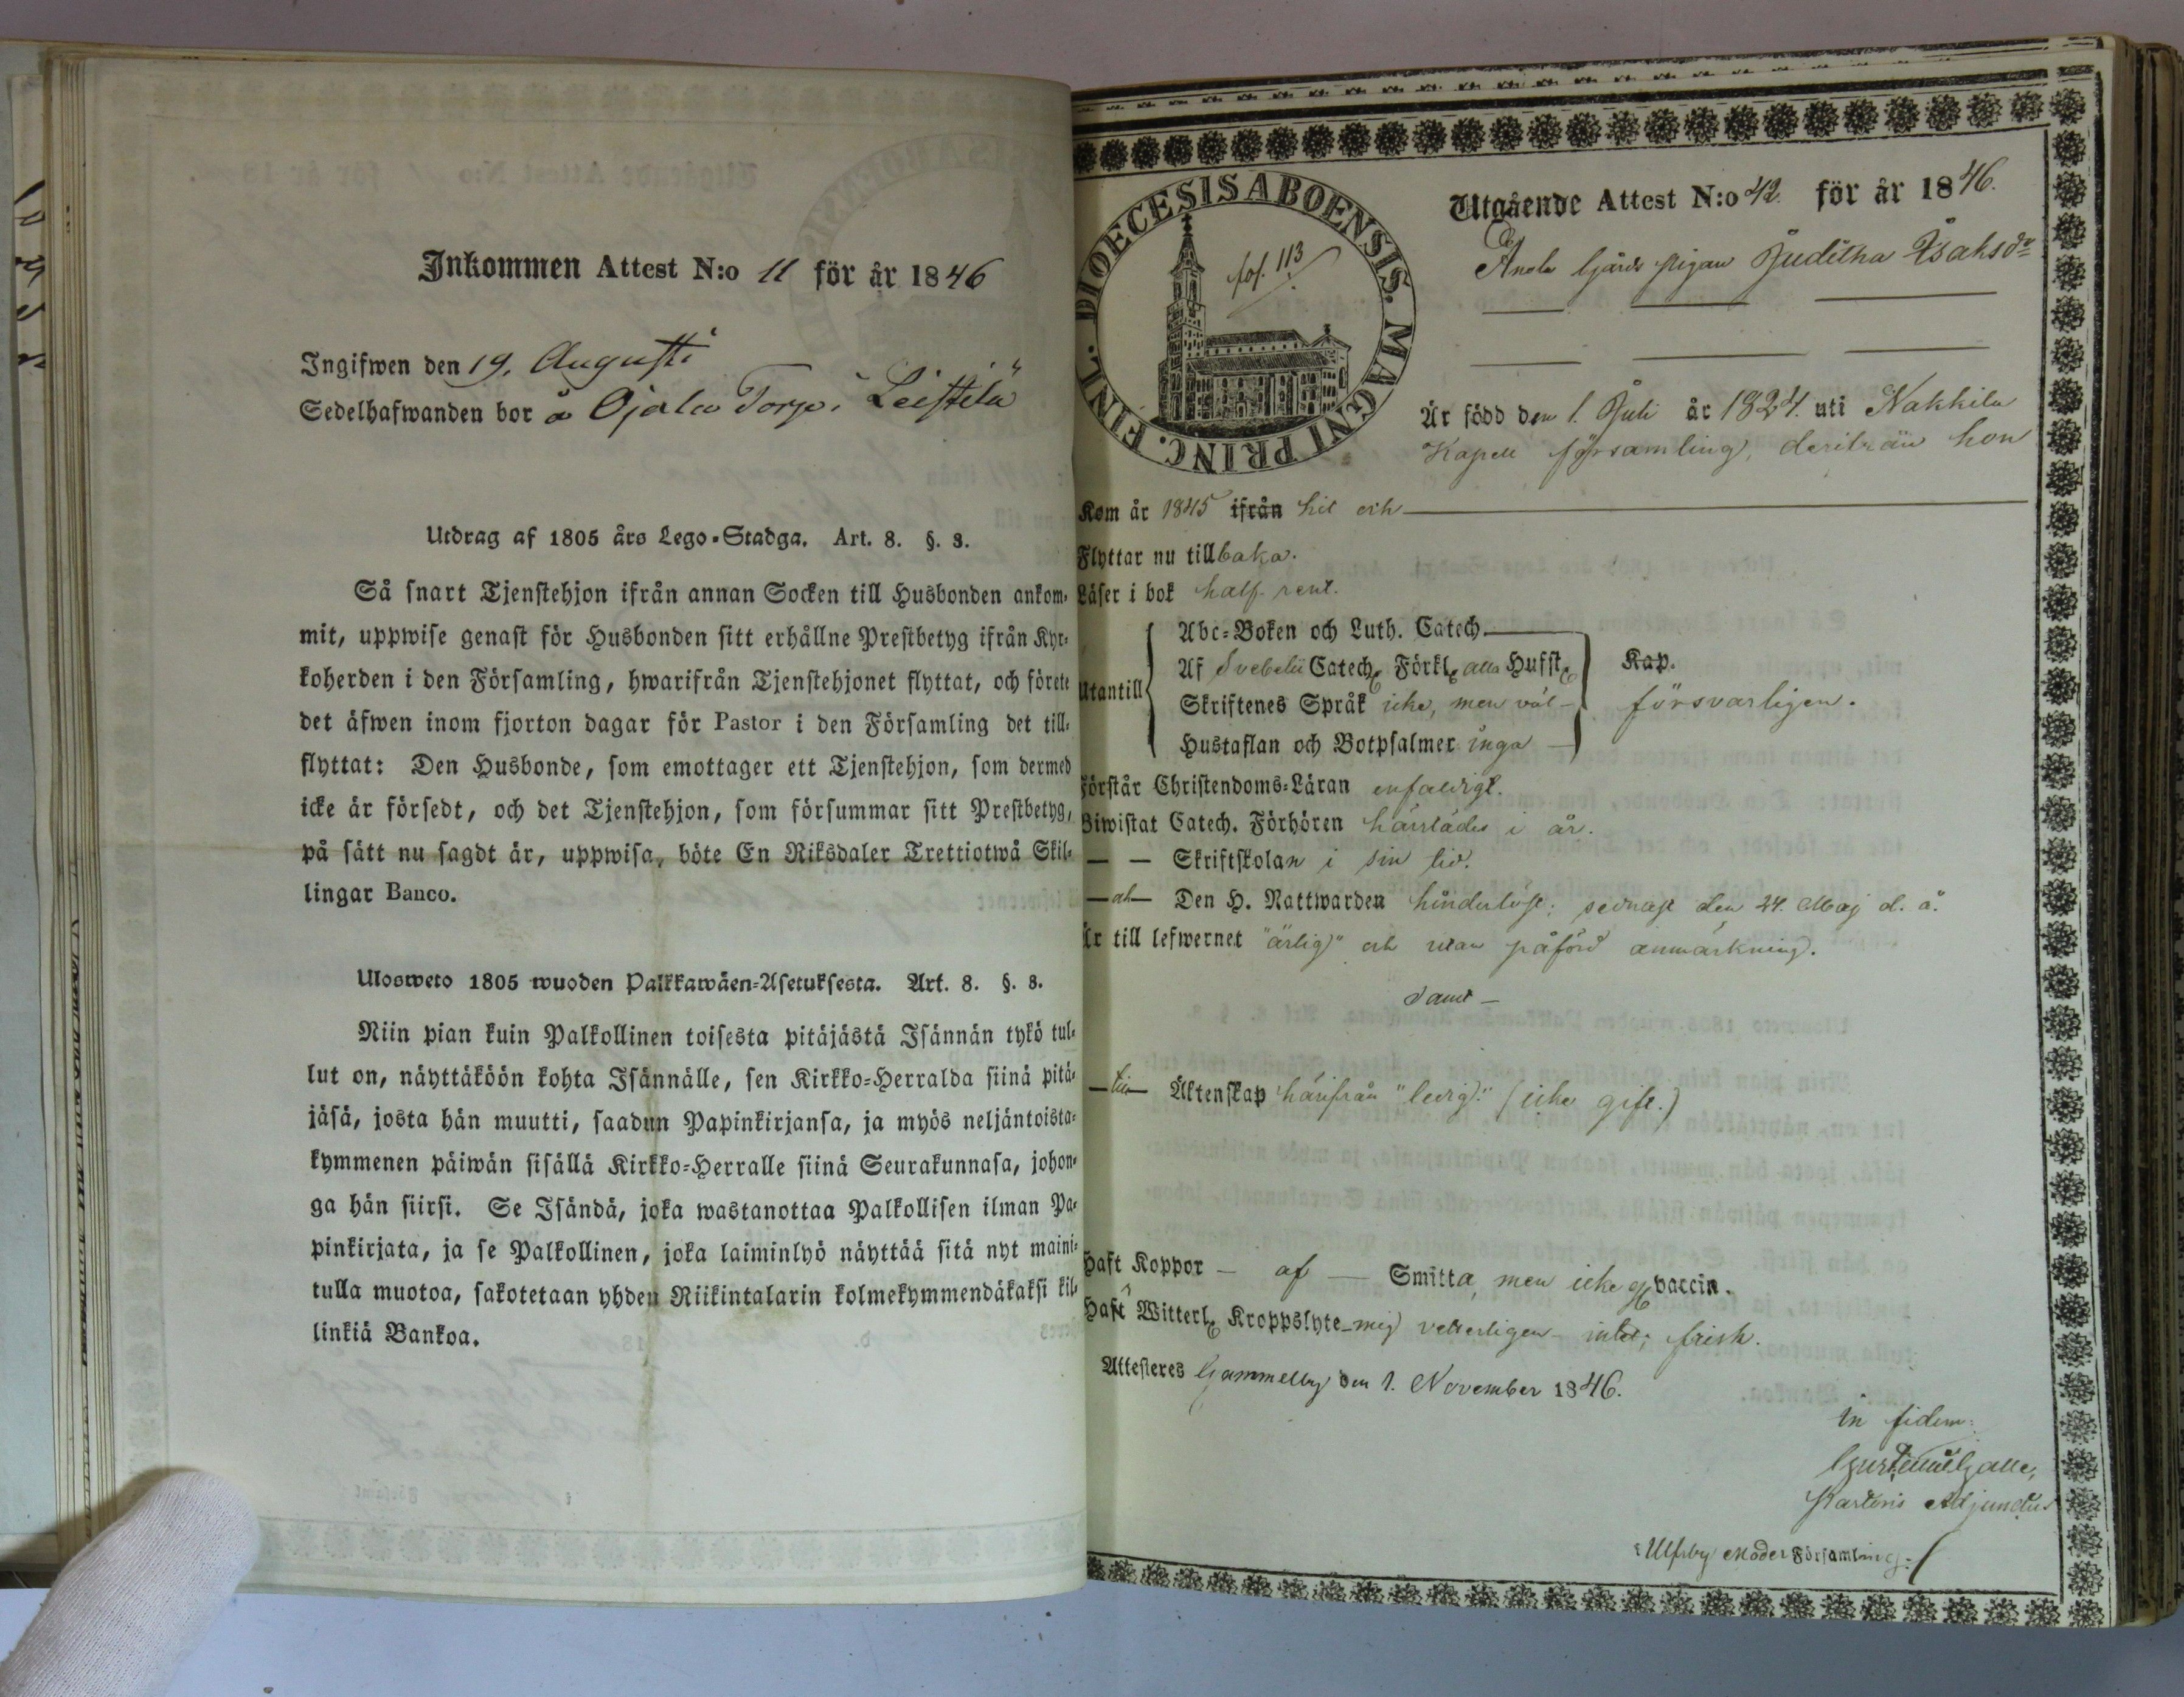 Inkommen Attest N:o 11 för år 1846
Ingifwen den 19. Augusti
Sedelhafwanden bor å Ojala Torp i Leistilä
Utdrag af 1805 års Lego-Stadga. Art. 8. §. 8.
Så snart Tjenstehjon ifrån annan Socken till Husbonden ankom-
mit, uppwise genast för Husbonden sitt erhållne Prestbetyg ifrån Kyr-
koherden i den Församling, hwarifrån Tjenstehjonet flyttat, och förete
det äfwen inom fjorton dagar för Pastor i den Församling det till-
flyttat: Den Husbonde, som emottager ett Tjenstehjon, som dermed
icke är försedt, och det Tjenstehjon, som försummar sitt Prestbetyg,
på sätt nu sagdt är, uppwisa, böte En Riksdaler Trettiotwå Skil-
lingar Banco.
Ulosweto 1805 wuoden Palkkawäen-Asetuksesta. Art. 8. §. 8.
Niin pian kuin Palkollinen toisesta pitäjästä Isännän tykö tul-
lut on, näyttäköön kohta Isännälle, sen Kirkko-Herralda siinä pitä-
jäsä, josta hän muutti, saadun Papinkirjansa, ja myös neljäntoista-
kymmenen päiwän sisällä Kirkko-Herralle siinä Seurakunnasa, johon-
ga hän siirsi. Se Isändä, joka wastanottaa Palkollisen ilman Pa-
pinkirjata, ja se Palkollinen, joka laiminlyö näyttää sitä nyt maini-
tulla muotoa, sakotetaan yhden Riikintalarin kolmekymmendäkaksi kil-
linkiä Bankoa.
DIOECESIS ABOENSIS. MAGNI PRINC. FINL.
fol. 113
Utgående Attest N:o 42. för år 1846.
Anola Gårds pigan Juditha Isaksdr
Är född den 1. Juli år 1824. uti Nakkila
Kapell församling, derifrån hon
Kom år 1845 ifrån hit och
Flyttar nu tillbaka.
Läser i bok half rent.
Utantill
Abc-Boken och Luth. Catech.
Af Svebelii Catech. Förkl. alla Hufst.
Skriftenes Språk icke, men väl
Hustaflan och Botpsalmer inga
Kap.
försvarligen.
Förstår Christendoms-Läran enfaldigt.
Biwistat Catech. Förhören härstädes i år.
— — Skriftskolan i sin tid.
— at — Den H. Nattwarden hinderlöst; sednast den 24. Maj d. å.
Är till lefwernet "ärlig" och utan påförd anmärkning.
samt —
— till — Äktenskap härifrån "ledig." (icke gift.)
Haft Koppor — af — Smitta, men icke af vaccin.
Haft Witterl. Kroppslyte mig vetterligen intet; frisk.
Attesteres Gammelby den 1. November 1846.
in fidem:
Pastoris Adjunctus
i Ulfsby Moder Församling.